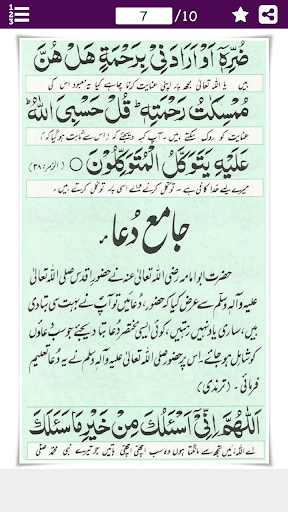 7 /10
ضُرِّهٖٓ اَوْ اَرَادَنِیْ بِرَحْمَةٍ هَلْ هُنَّ
ہیں یا اللہ تعالٰی مجھ پر اپنی عنایت کرنا چاہے کیا یہ معبود اس کی
مُمْسِكٰتُ رَحْمَتِهٖ ؕ قُلْ حَسْبِیَ اللّٰهُ ؕ
عنایت کو روک سکتے ہیں۔ آپ کہہ دیجئے کہ (اس سے ثابت ہو گیا کہ)
عَلَیْهِ یَتَوَكَّلُ الْمُتَوَكِّلُوْنَ ○ (الزمر: ۳۸)
میرے لئے خدا کافی ہے۔ توکل کرنے والے اسی پر توکل کرتے ہیں۔
جامع دُعاء
حضرت ابوامامہ رضی اللہ تعالٰی عنہ نے حضورِ اقدس صلی اللہ تعالٰی
علیہ وآلہ وسلم سے عرض کیا کہ حضور آپ نے بہت سی دُعائیں بتا دی
ہیں، ساری یاد نہیں رہتیں، کوئی ایسی مختصر دُعا بتا دیجئے جو سب دُعاؤں
کو شامل ہو جائے۔ اس پر حضور صلی اللہ تعالٰی علیہ وآلہ وسلم نے یہ دُعا تعلیم
فرمائی۔ (ترمذی)
اَللّٰهُمَّ اِنِّیْٓ اَسْئَلُكَ مِنْ خَیْرِ مَا سَئَلَكَ
اے اللہ! میں تجھ سے مانگتا ہوں وہ سب اچھی اچھی باتیں جو تیرے نبی محمد صلی